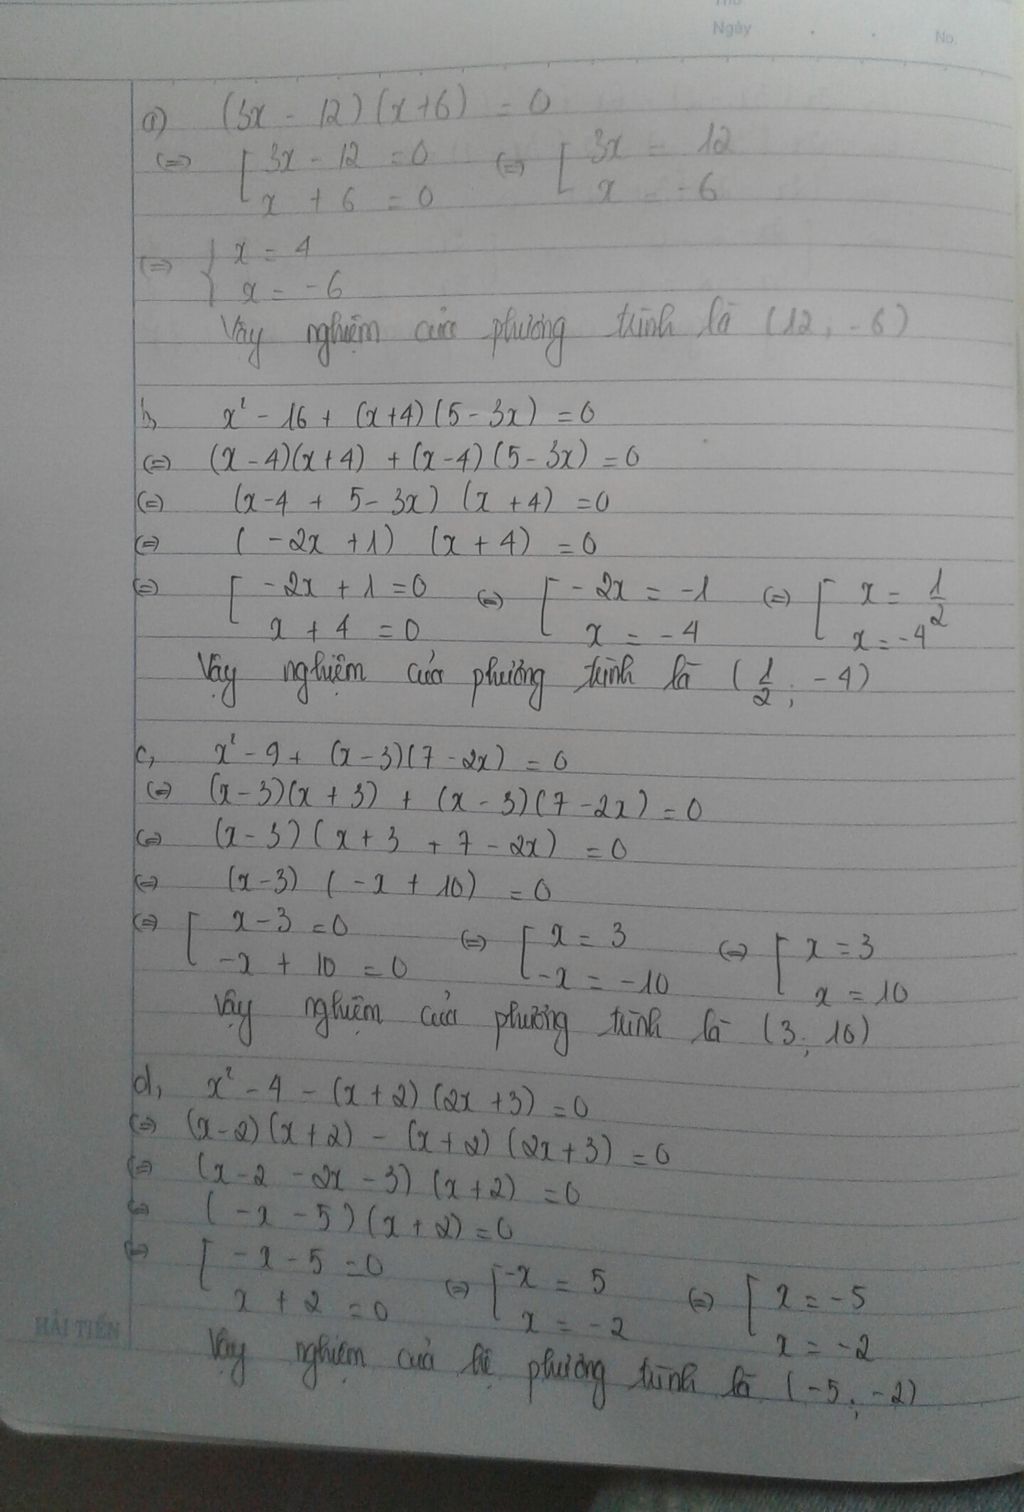 Thứ
Ngày . . No.
a) (3x - 12)(x+6) = 0
(=) [ 3x - 12 = 0 (=) [ 3x = 12
x + 6 = 0 x = -6
(=) { x = 4
x = -6
Vậy nghiệm của phương trình là (12, -6)
b, x² - 16 + (x+4)(5-3x) = 0
(=) (x-4)(x+4) + (x-4)(5-3x) = 0
(=) (x-4 + 5-3x) (x+4) = 0
(=) (-2x+1) (x+4) = 0
(=) [ -2x+1 = 0 (=) [ -2x = -1 (=) [ x = 1/2
x + 4 = 0 x = -4 x = -4
Vậy nghiệm của phương trình là (1/2; -4)
c, x² - 9 + (x-3)(7-2x) = 0
(=) (x-3)(x+3) + (x-3)(7-2x) = 0
(=) (x-3)(x+3 + 7 - 2x) = 0
(=) (x-3) (-x + 10) = 0
(=) [ x-3 = 0 (=) [ x = 3 (=) [ x = 3
-x + 10 = 0 -x = -10 x = 10
Vậy nghiệm của phương trình là (3; 10)
d, x² - 4 - (x+2)(2x+3) = 0
(=) (x-2)(x+2) - (x+2)(2x+3) = 0
(=) (x-2 - 2x - 3) (x+2) = 0
(=) (-x - 5)(x+2) = 0
(=) [ -x-5 = 0 (=) [ -x = 5 (=) [ x = -5
x + 2 = 0 x = -2 x = -2
HẢI TIẾN
Vậy nghiệm của hệ phương trình là (-5; -2)